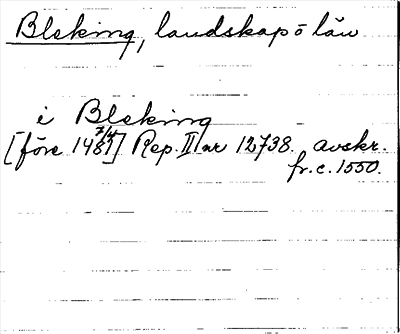 Bleking, landskap o län
i Bleking
[före 1487 7/4] Rep. II nr 12738. avskr.
fr. c. 1550.